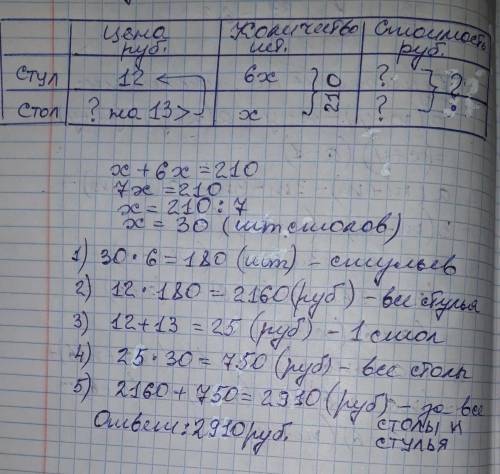 Цена руб. Количество шт. Стоимость руб.
Стул 12 6х 210 ? ?
Стол ? на 13> х ?
х + 6х = 210
7х = 210
х = 210 : 7
х = 30 (шт столов)
1) 30 · 6 = 180 (шт) – стульев
2) 12 · 180 = 2160 (руб) – все стулья
3) 12 + 13 = 25 (руб) – 1 стол
4) 25 · 30 = 750 (руб) – все столы
5) 2160 + 750 = 2910 (руб) – за все
столы и
стулья
Ответ: 2910 руб.